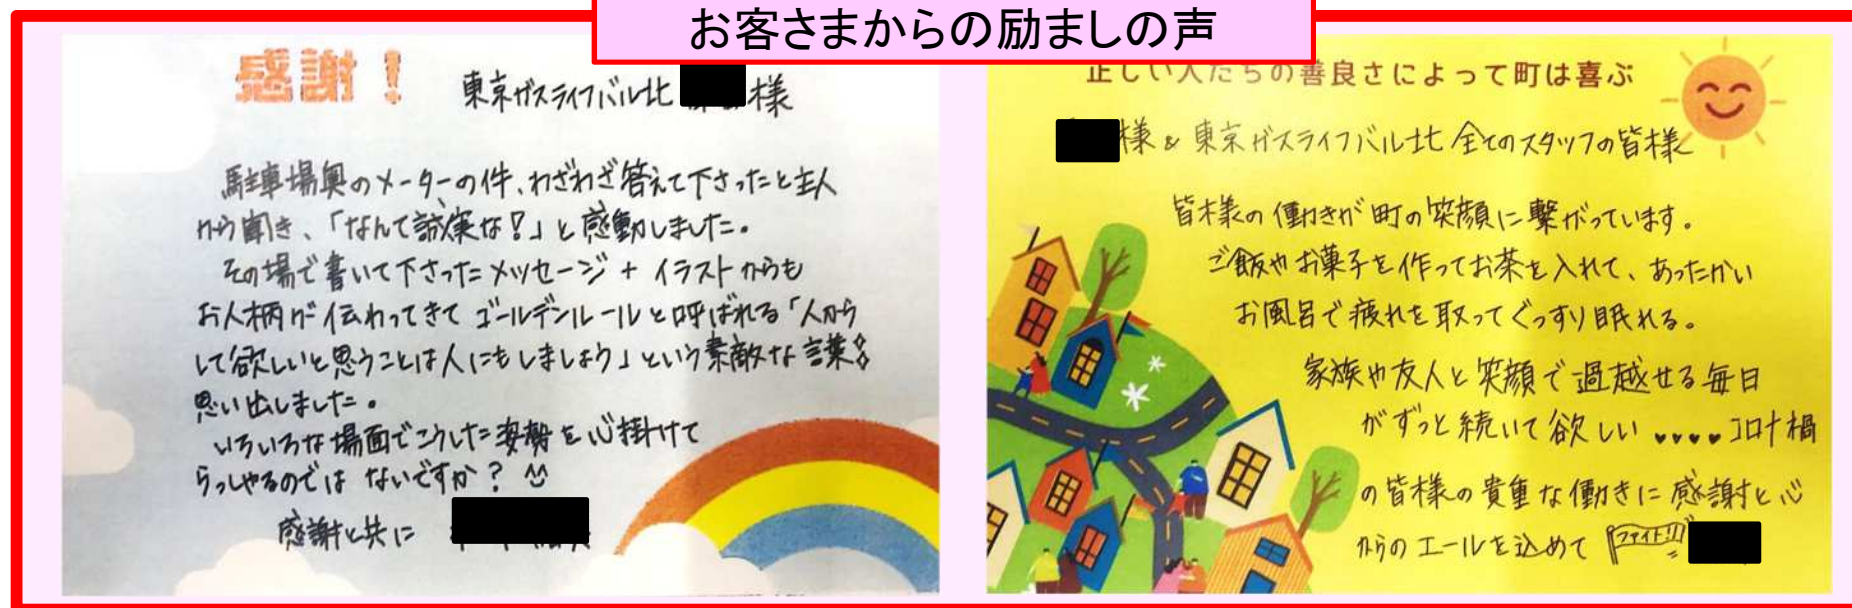 お客さまからの励ましの声
感謝!
東京ガスライフバル北 様
駐車場奥のメーターの件、わざわざ答えて下さったと主人
から聞き、「なんて誠実な!?」と感動しました。
その場で書いて下さったメッセージ + イラストからも
お人柄が伝わってきてゴールデンルールと呼ばれる「人から
して欲しいと思うことは人にもしましょう」という素敵な言葉を
思い出しました。
いろいろな場面でこうした姿勢を心掛けて
らっしゃるのでは ないですか?
感謝と共に
正しい人たちの善良さによって町は喜ぶ
様 & 東京ガスライフバル北 全てのスタッフの皆様
皆様の働きが町の笑顔に繋がっています。
ご飯やお菓子を作ってお茶を入れて、あったかい
お風呂で疲れを取ってぐっすり眠れる。
家族や友人と笑顔で過越せる毎日
がずっと続いて欲しい コロナ禍
の皆様の貴重な働きに感謝と心
からのエールを込めて ファイト!!